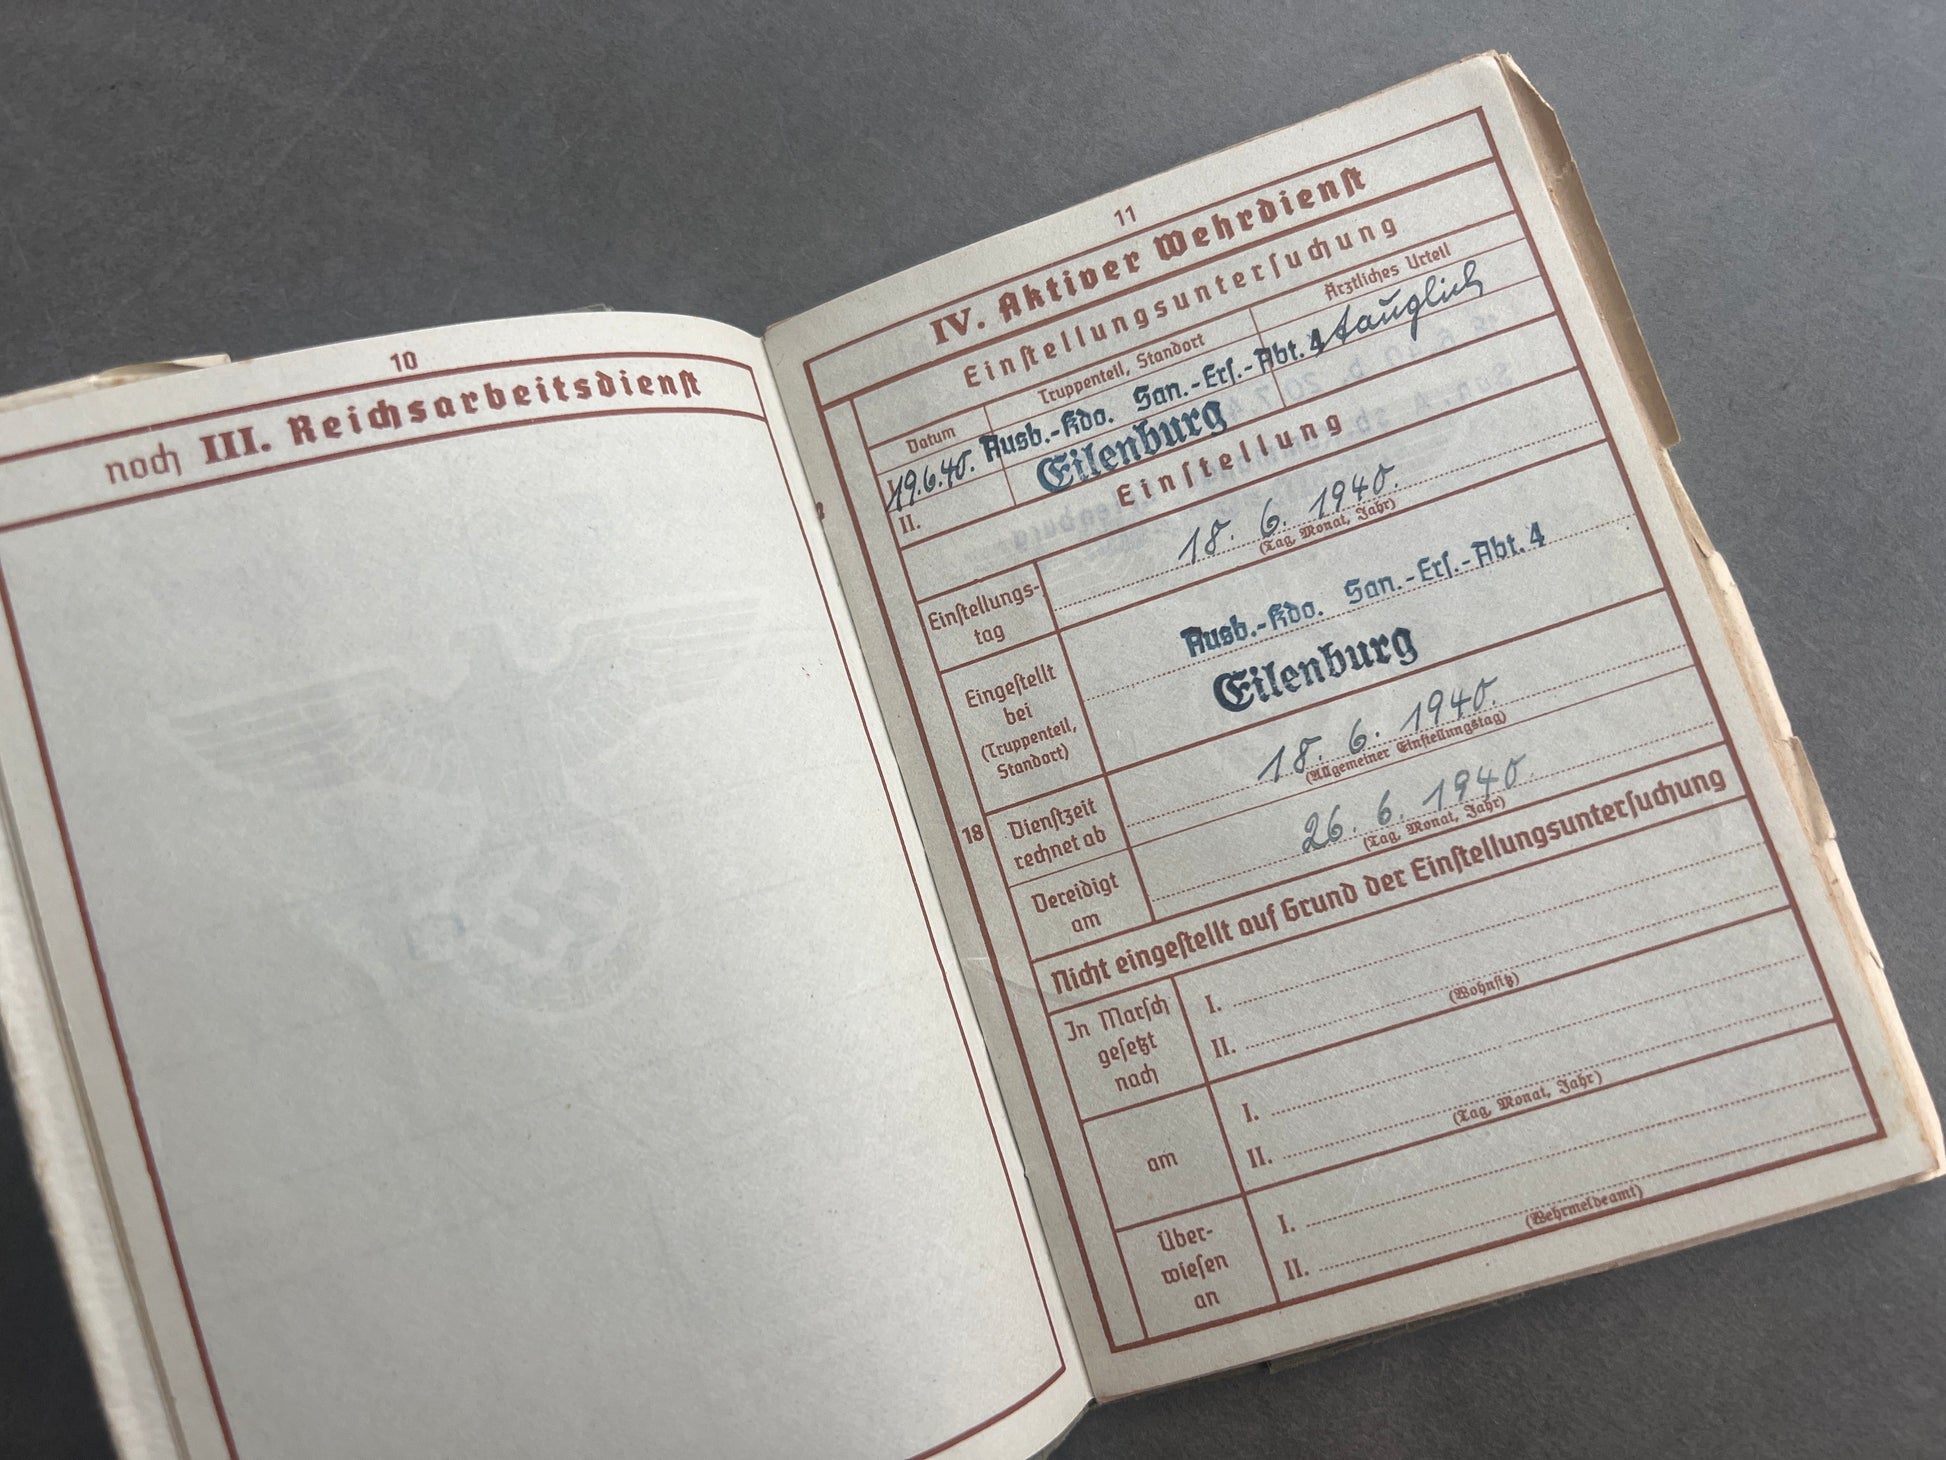 10
noch III. Reichsarbeitsdienst
11
IV. Aktiver Wehrdienst
Einstellungsuntersuchung
Datum
Truppenteil, Standort
Ärztliches Urteil
I.
19.6.40.
Ausb.-Kdo. San.-Ers.-Abt. 4
tauglich
Eilenburg
II.
Einstellung
18
Einstellungs-
tag
18. 6. 1940.
(Tag, Monat, Jahr)
Eingestellt
bei
(Truppenteil,
Standort)
Ausb.-Kdo. San.-Ers.-Abt. 4
Eilenburg
Dienstzeit
rechnet ab
18. 6. 1940.
(Allgemeiner Einstellungstag)
Vereidigt
am
26. 6. 1940.
(Tag, Monat, Jahr)
Nicht eingestellt auf Grund der Einstellungsuntersuchung
In Marsch
gesetzt
nach
I.
(Wohnsitz)
II.
am
I.
(Tag, Monat, Jahr)
II.
Über-
wiesen
an
I.
(Wehrmeldeamt)
II.